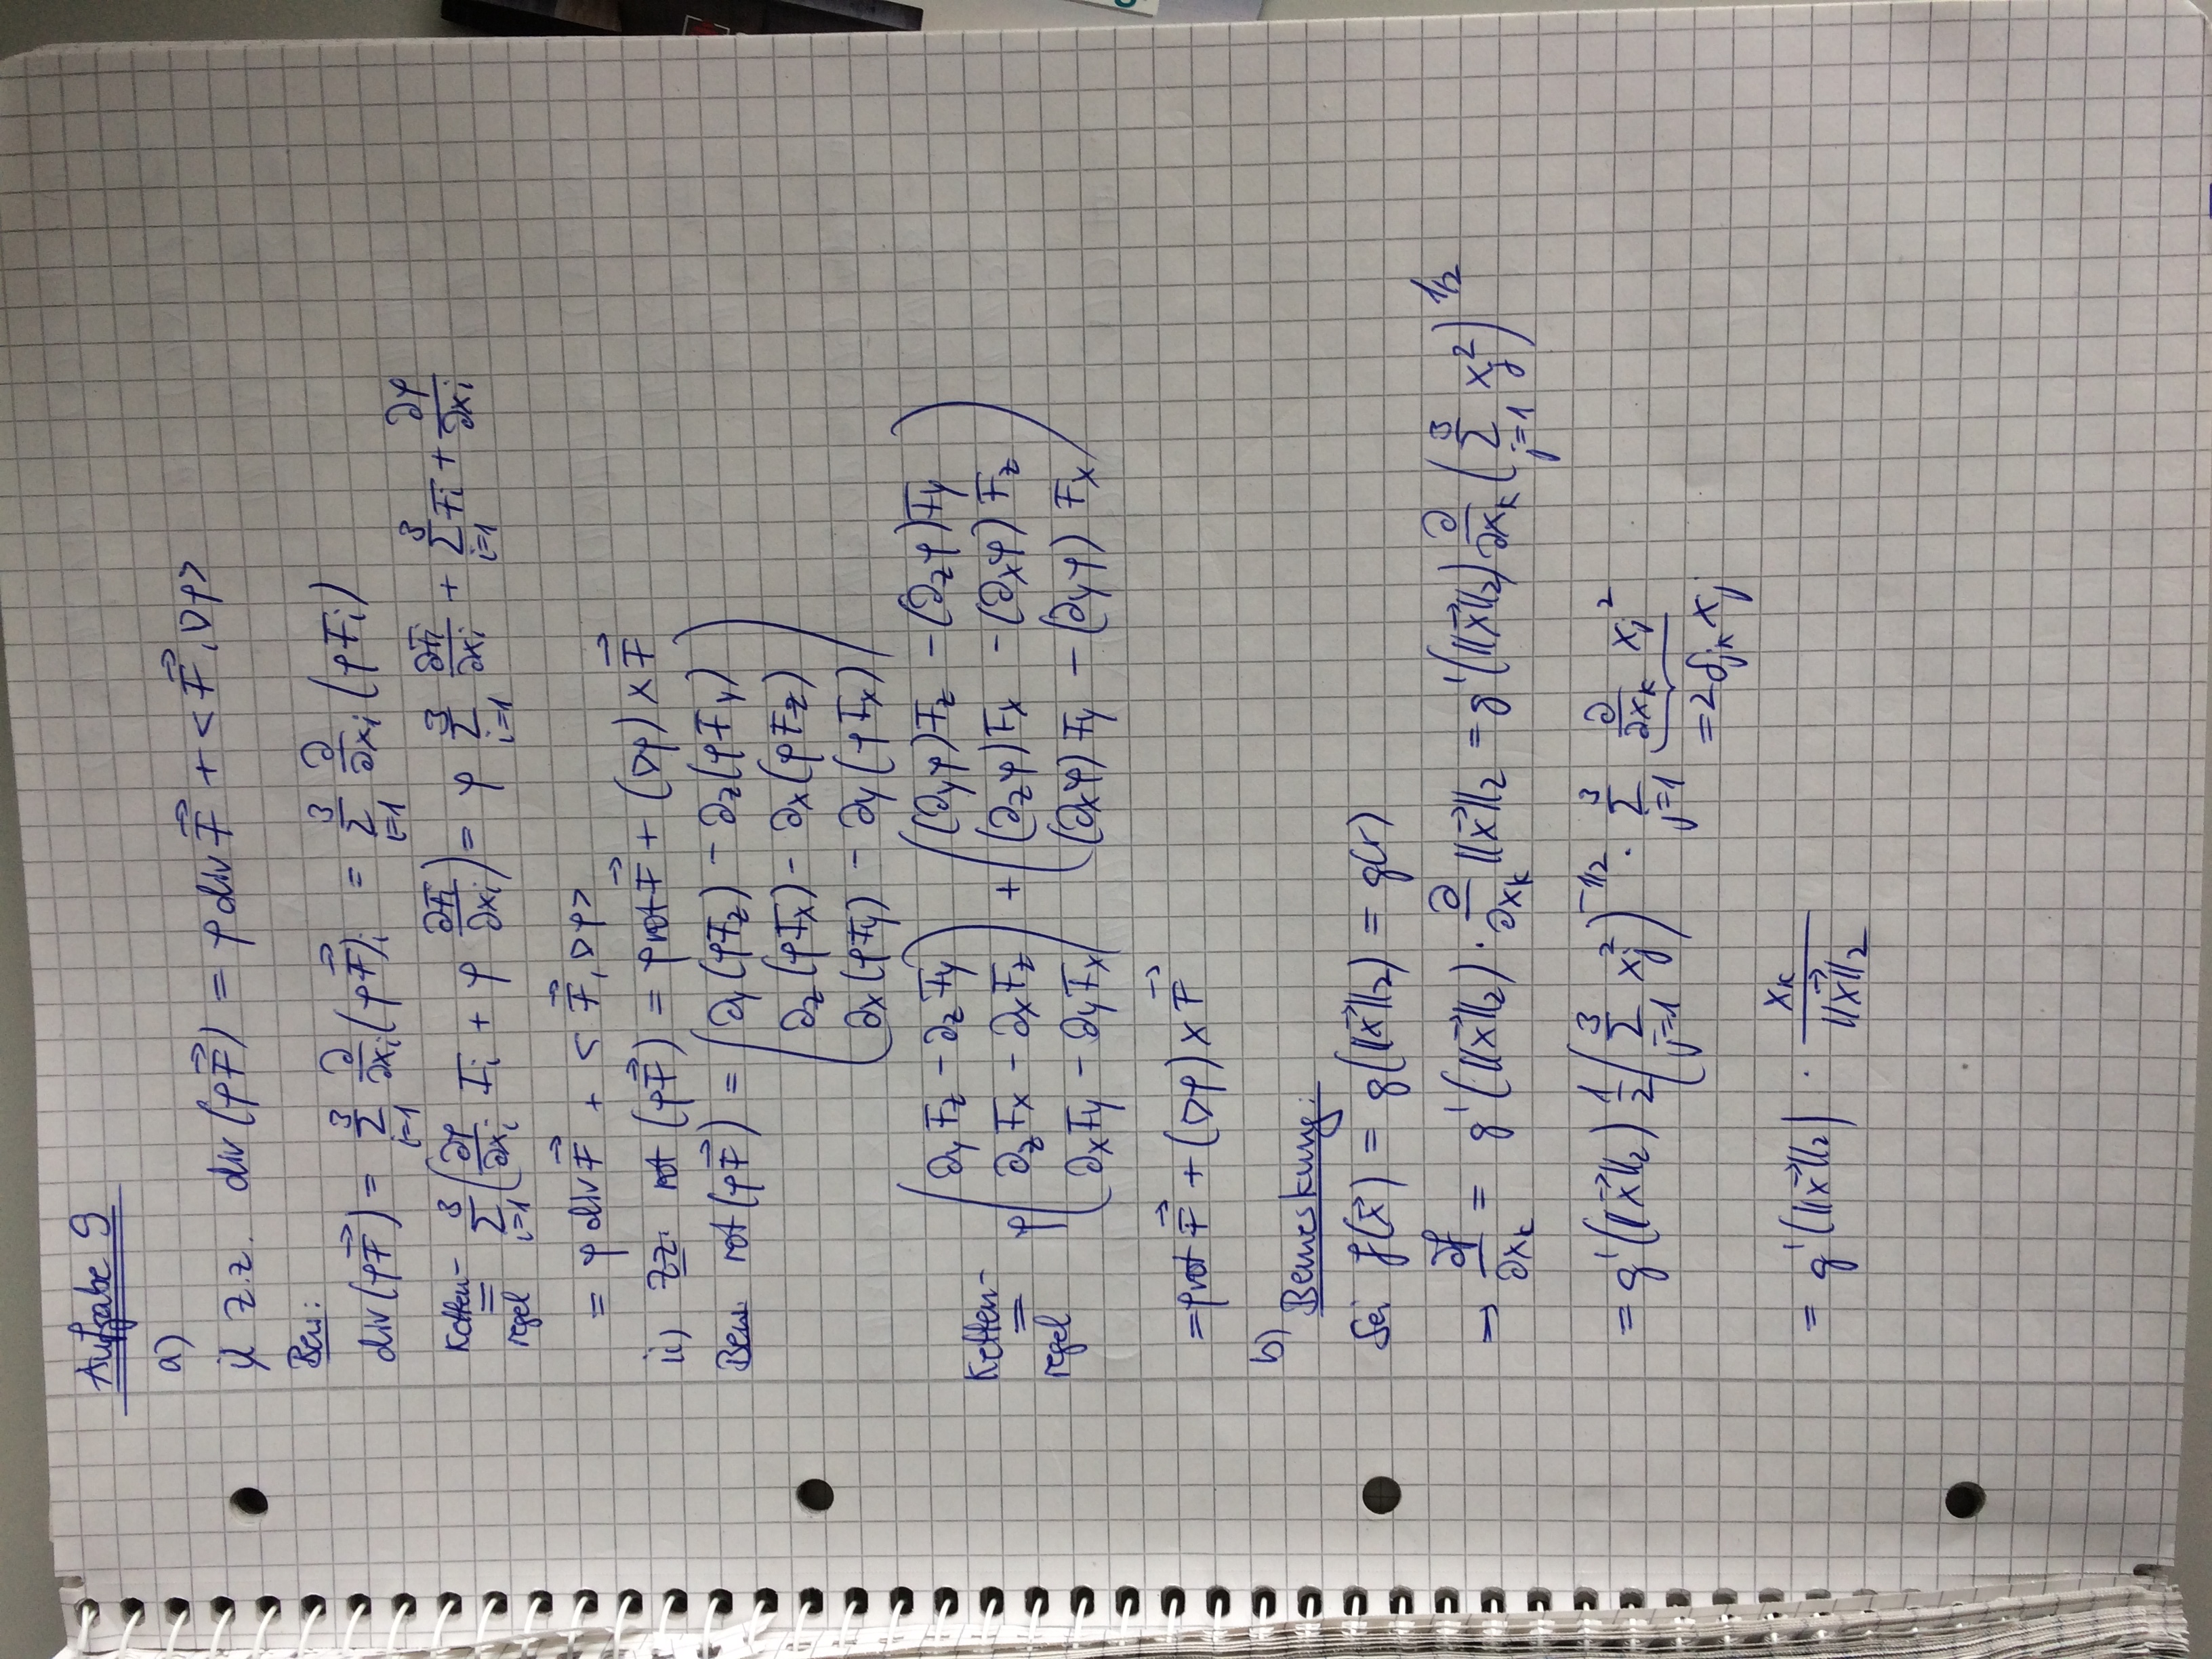 Aufgabe 9
a)
i) z.z. div(φF⃗) = φ div F⃗ + <F⃗, ∇φ>
Bew:
div(φF⃗) = ∑_{i=1}^{3} ∂/∂x_i (φF⃗)_i = ∑_{i=1}^{3} ∂/∂x_i (φF_i)
Ketten-regel = ∑_{i=1}^{3} (∂φ/∂x_i F_i + φ ∂F_i/∂x_i) = φ ∑_{i=1}^{3} ∂F_i/∂x_i + ∑_{i=1}^{3} F_i + ∂φ/∂x_i
= φ div F⃗ + <F⃗, ∇φ>
ii) zz. rot (φF⃗) = φ rot F⃗ + (∇φ) × F⃗
Bew. rot(φF⃗) = ( ∂y(φFz) − ∂z(φFy)
∂z(φFx) − ∂x(φFz)
∂x(φFy) − ∂y(φFx) )
Ketten-regel = φ ( ∂yFz − ∂zFy ) + ( (∂yφ)Fz − (∂zφ)Fy )
∂zFx − ∂xFz (∂zφ)Fx − (∂xφ)Fz
∂xFy − ∂yFx (∂xφ)Fy − (∂yφ)Fx
= φ rot F⃗ + (∇φ) × F⃗
b)
Bemerkung:
Sei f(x⃗) = g(||x⃗||₂) = g(r)
→ ∂f/∂x_k = g'(||x⃗||₂) · ∂/∂x_k ||x⃗||₂ = g'(||x⃗||₂) ∂/∂x_k (∑_{j=1}^{3} x_j²)^{1/2}
= g'(||x⃗||₂) 1/2 (∑_{j=1}^{3} x_j²)^{-1/2} · ∑_{j=1}^{3} ∂/∂x_k x_j²
= 2 δ_{jk} x_j
= g'(||x⃗||₂) · x_k/||x⃗||₂